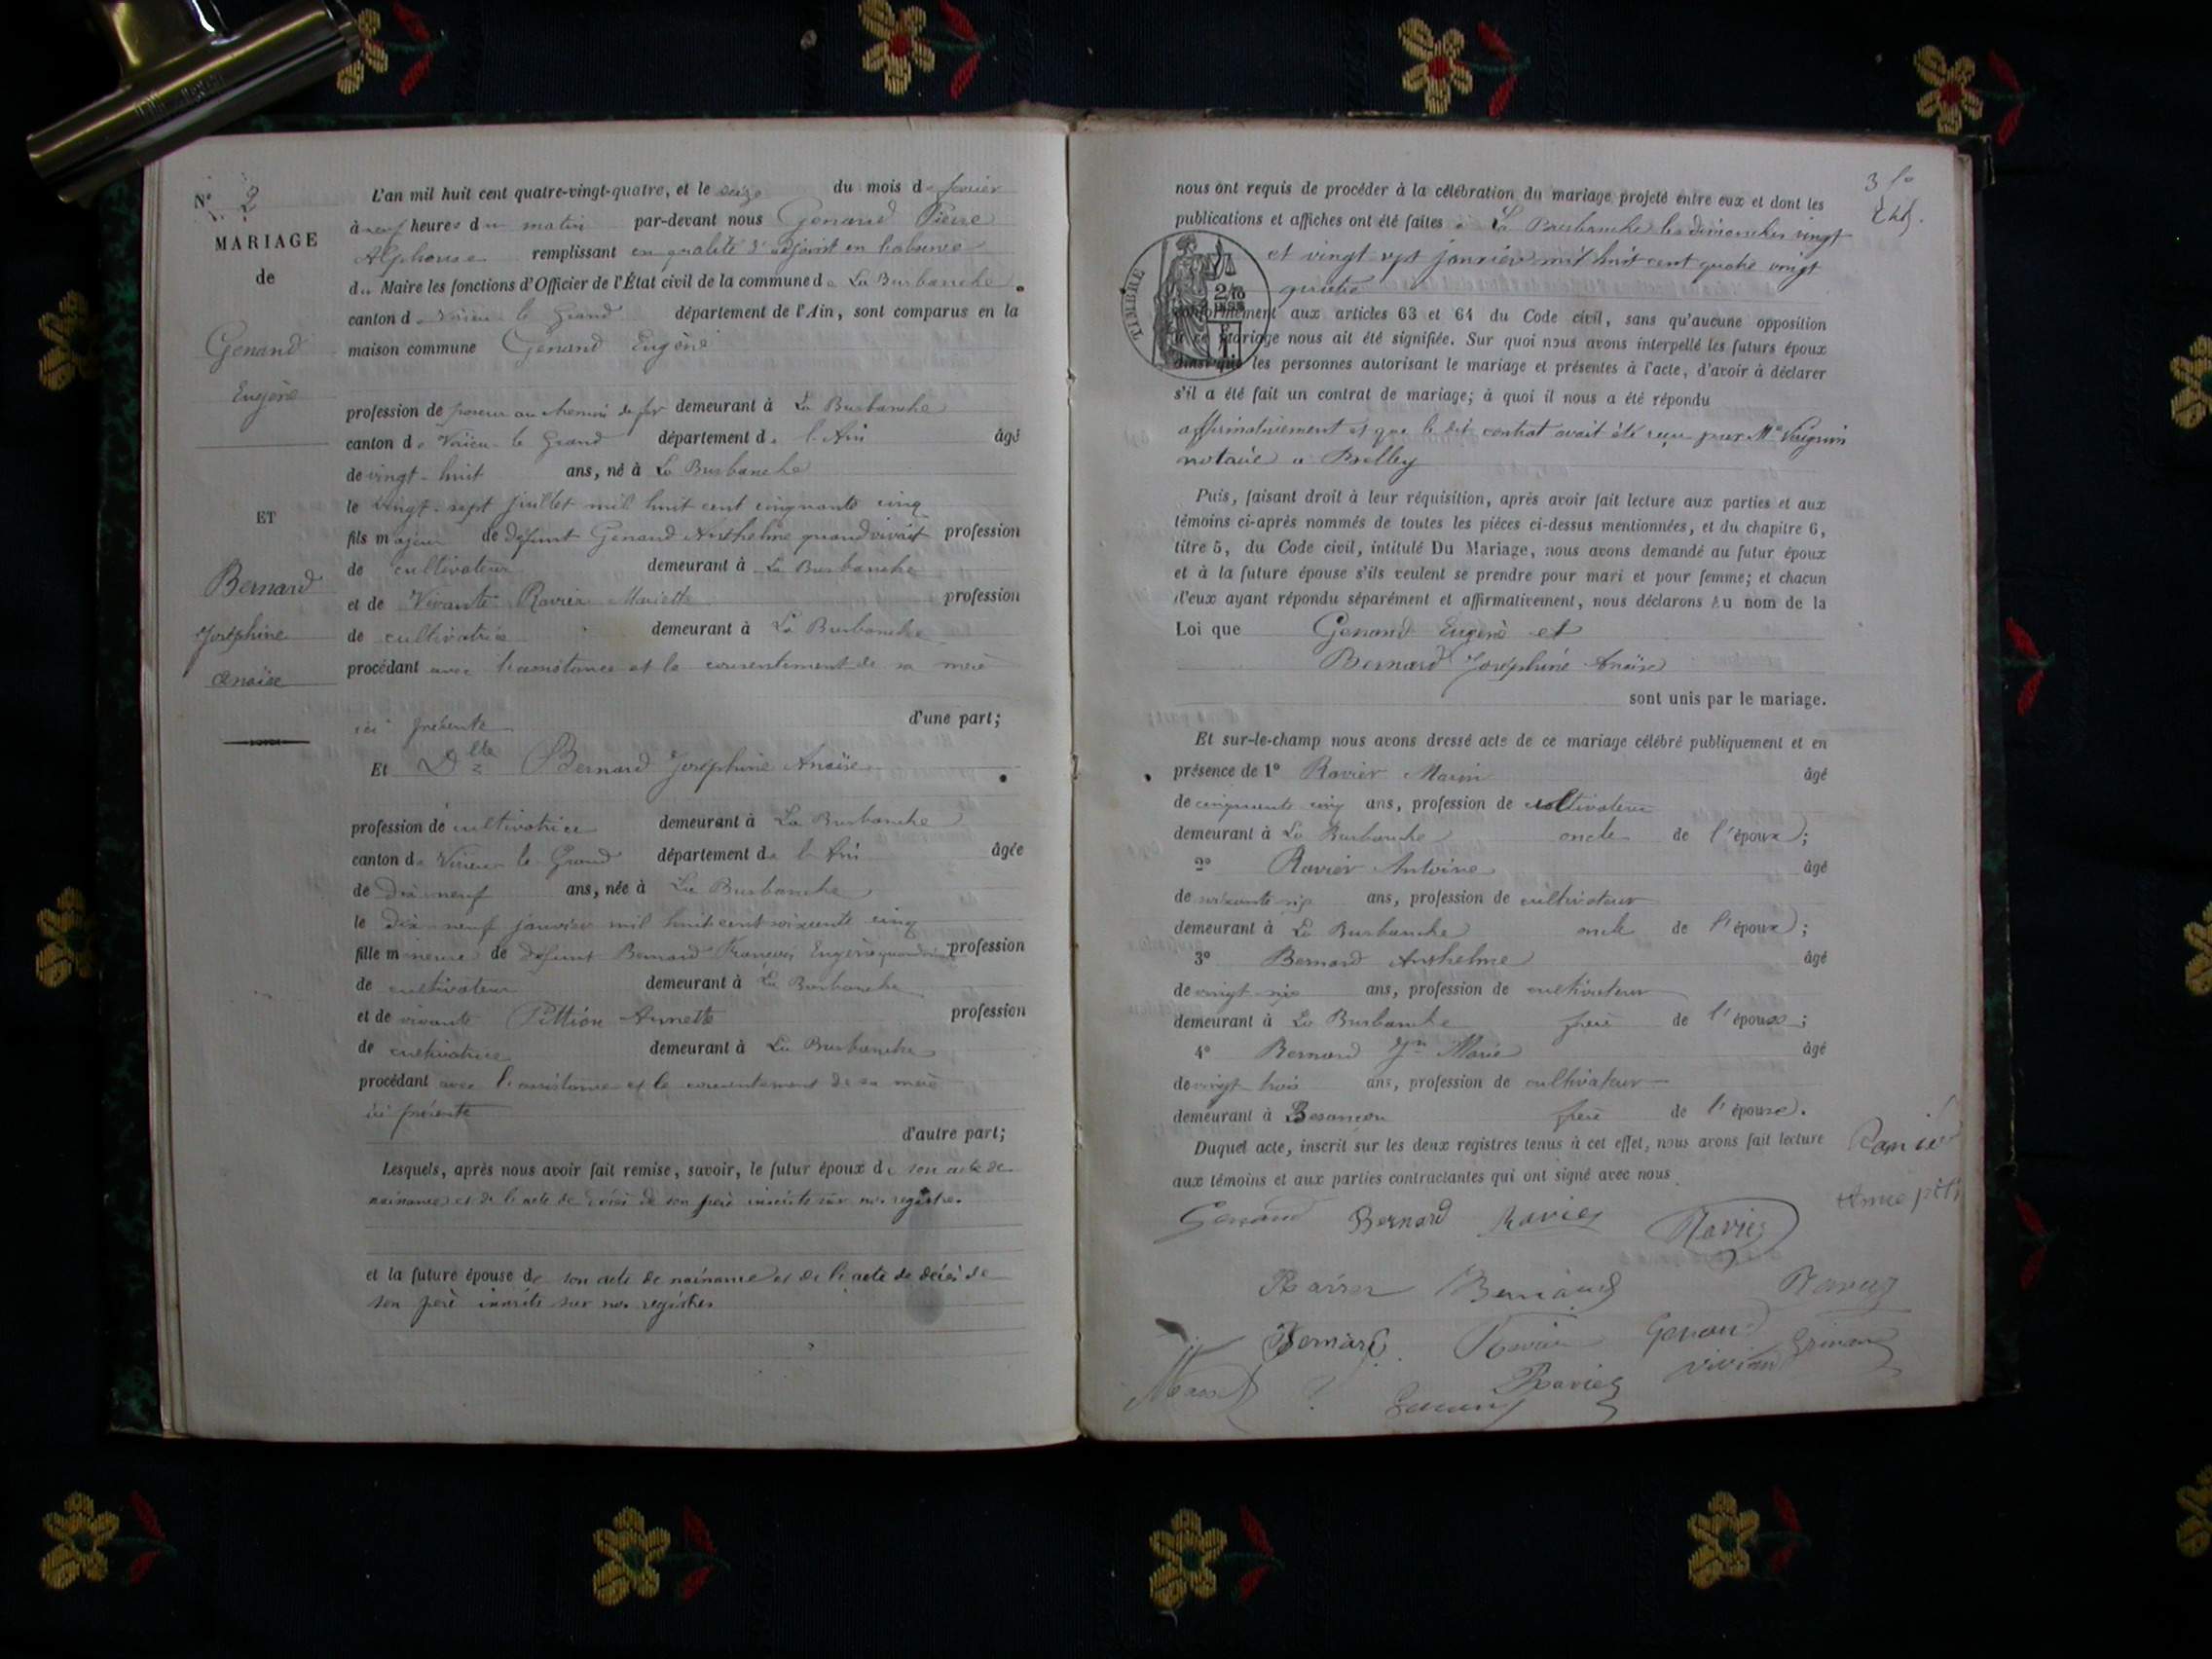 N° 2
MARIAGE
de
Genand
Eugène
ET
Bernard
Joséphine
Anaïse
L'an mil huit cent quatre-vingt-quatre, et le seize du mois de février
à neuf heures du matin par-devant nous Genand Pierre
Alphonse remplissant en qualité d'adjoint en l'absence
du Maire les fonctions d'Officier de l'État civil de la commune de La Burbanche
canton de Virieu-le-Grand département de l'Ain, sont comparus en la
maison commune Genand Eugène
profession de poseur au chemin de fer demeurant à La Burbanche
canton de Virieu-le-Grand département de l'Ain âgé
de vingt-huit ans, né à La Burbanche
le vingt-sept juillet mil huit cent cinquante cinq
fils majeur de défunt Genand Anthelme quand vivait profession
de cultivateur demeurant à La Burbanche
et de Vivante Ravier Mariette profession
de cultivatrice demeurant à La Burbanche
procédant avec l'assistance et le consentement de sa mère
ici présente d'une part;
Et Dlle Bernard Joséphine Anaïse
profession de cultivatrice demeurant à La Burbanche
canton de Virieu-le-Grand département de l'Ain âgée
de dix-neuf ans, née à La Burbanche
le dix-neuf janvier mil huit cent soixante cinq
fille mineure de défunt Bernard François Eugène quand vivait profession
de cultivateur demeurant à La Burbanche
et de vivante Pittion Annette profession
de cultivatrice demeurant à La Burbanche
procédant avec l'assistance et le consentement de sa mère
ici présente
d'autre part;
Lesquels, après nous avoir fait remise, savoir, le futur époux de son acte de
naissance et de l'acte de décès de son père inscrits sur nos registres.
et la future épouse de son acte de naissance et de l'acte de décès de
son père inscrits sur nos registres
3 fo
nous ont requis de procéder à la célébration du mariage projeté entre eux et dont les
publications et affiches ont été faites à La Burbanche les dimanches vingt
et vingt sept janvier mil huit cent quatre vingt
quatre
TIMBRE
conformément aux articles 63 et 64 du Code civil, sans qu'aucune opposition
à ce mariage nous ait été signifiée. Sur quoi nous avons interpellé les futurs époux
ainsi que les personnes autorisant le mariage et présentes à l'acte, d'avoir à déclarer
s'il a été fait un contrat de mariage; à quoi il nous a été répondu
affirmativement et que le dit contrat avait été reçu par Me
notaire à Belley
Puis, faisant droit à leur réquisition, après avoir fait lecture aux parties et aux
témoins ci-après nommés de toutes les pièces ci-dessus mentionnées, et du chapitre 6,
titre 5, du Code civil, intitulé Du Mariage, nous avons demandé au futur époux
et à la future épouse s'ils veulent se prendre pour mari et pour femme; et chacun
d'eux ayant répondu séparément et affirmativement, nous déclarons Au nom de la
Loi que Genand Eugène et
Bernard Joséphine Anaïse
sont unis par le mariage.
Et sur-le-champ nous avons dressé acte de ce mariage célébré publiquement et en
présence de 1° Ravier Marin âgé
de cinquante cinq ans, profession de cultivateur
demeurant à La Burbanche oncle de l'époux;
2° Ravier Antoine âgé
de soixante six ans, profession de cultivateur
demeurant à La Burbanche oncle de l'époux;
3° Bernard Anthelme âgé
de vingt-six ans, profession de cultivateur
demeurant à La Burbanche frère de l'épouse;
4° Bernard Jn Marie âgé
de vingt trois ans, profession de cultivateur
demeurant à Besançon frère de l'épouse.
Duquel acte, inscrit sur les deux registres tenus à cet effet, nous avons fait lecture
aux témoins et aux parties contractantes qui ont signé avec nous
Genand Bernard Ravier Ravier
Bernaud
Bernard Ravier Genand
Vivian
Ravier